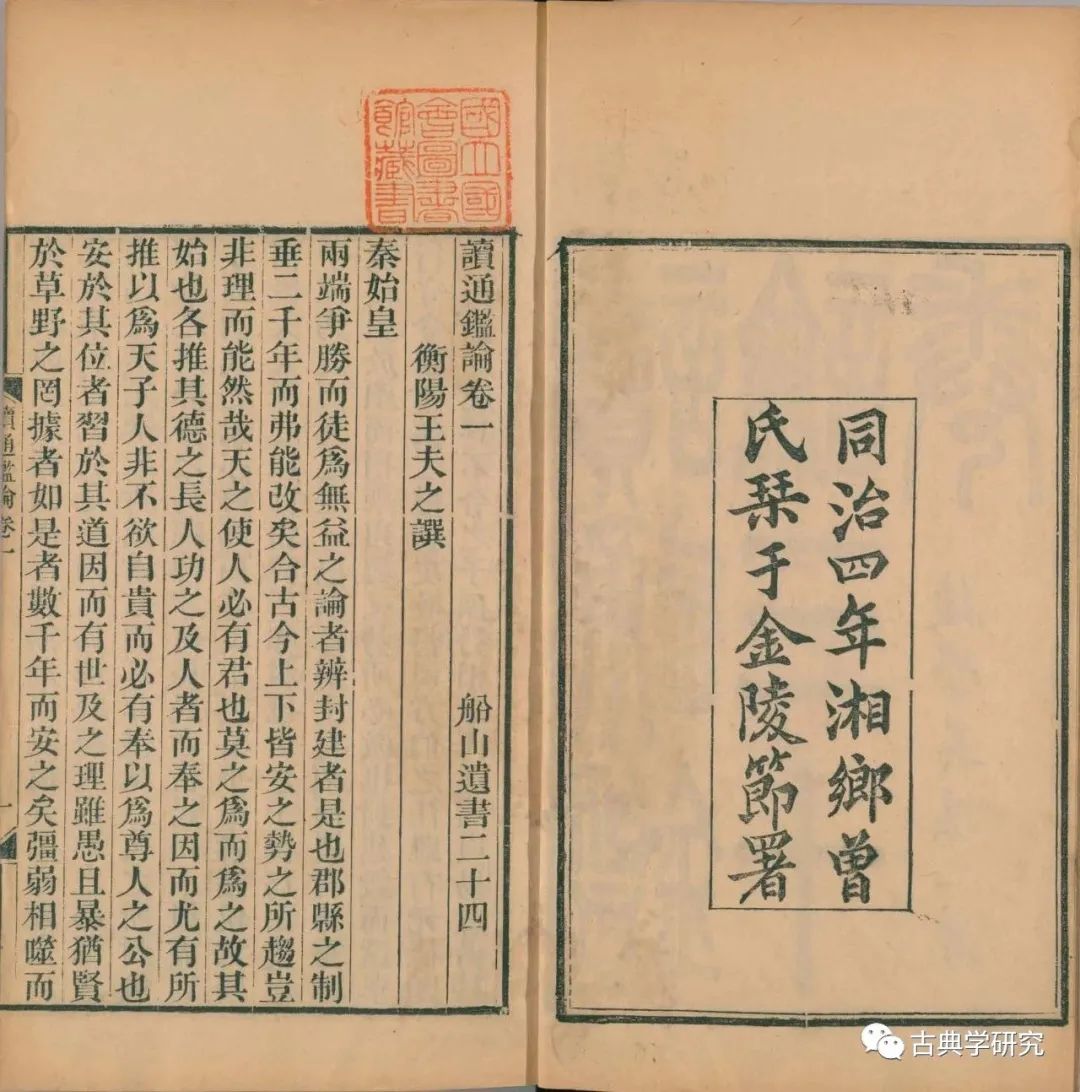 同治四年湘鄉曾
氏栞于金陵節署
國立國
會圖書
館藏書
讀通鑑論卷一 船山遺書二十四
衡陽王夫之譔
秦始皇
兩端爭勝而徒爲無益之論者辨封建者是也郡縣之制
垂二千年而弗能改矣合古今上下皆安之勢之所趨豈
非理而能然哉天之使人必有君也莫之爲而爲之故其
始也各推其德之長人功之及人者而奉之因而尤有所
推以爲天子人非不欲自貴而必有奉以爲尊人之公也
安於其位者習於其道因而有世及之理雖愚且暴猶賢
於草野之罔據者如是者數千年而安之矣彊弱相噬而
讀通鑑論卷一
一
古典学研究